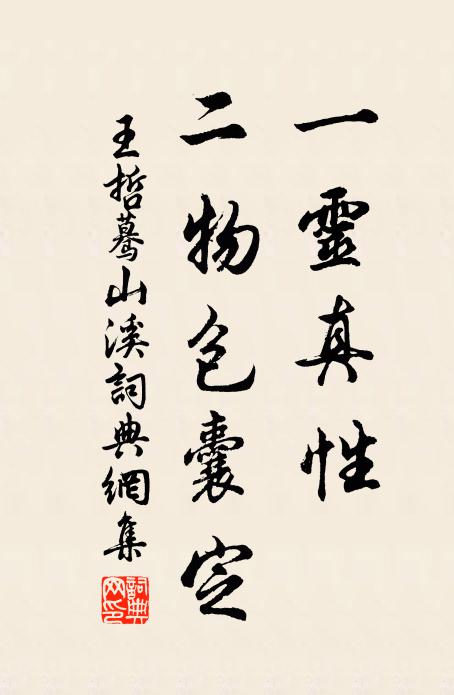 一靈真性
二物包囊定
王哲蓦山溪詞典網集
詞典網印